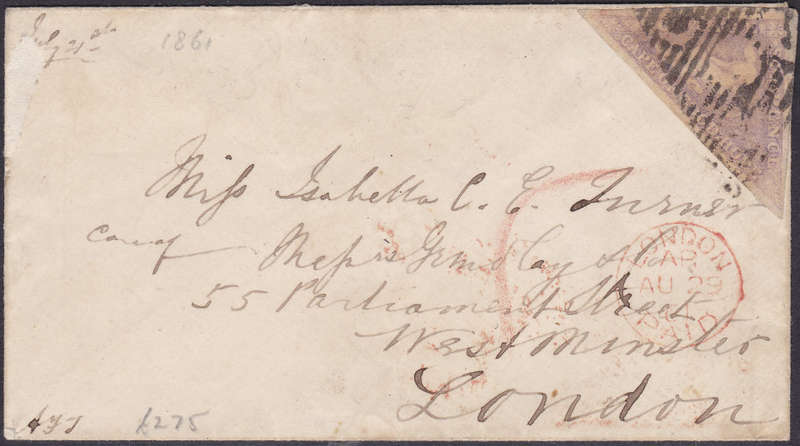 July 21st
1861
Miss Isabella C. E. Turner
Care of Messrs Grindlay & Co
55 Parliament Street
West Minster
London
LONDON
AU 29
PAID
£275